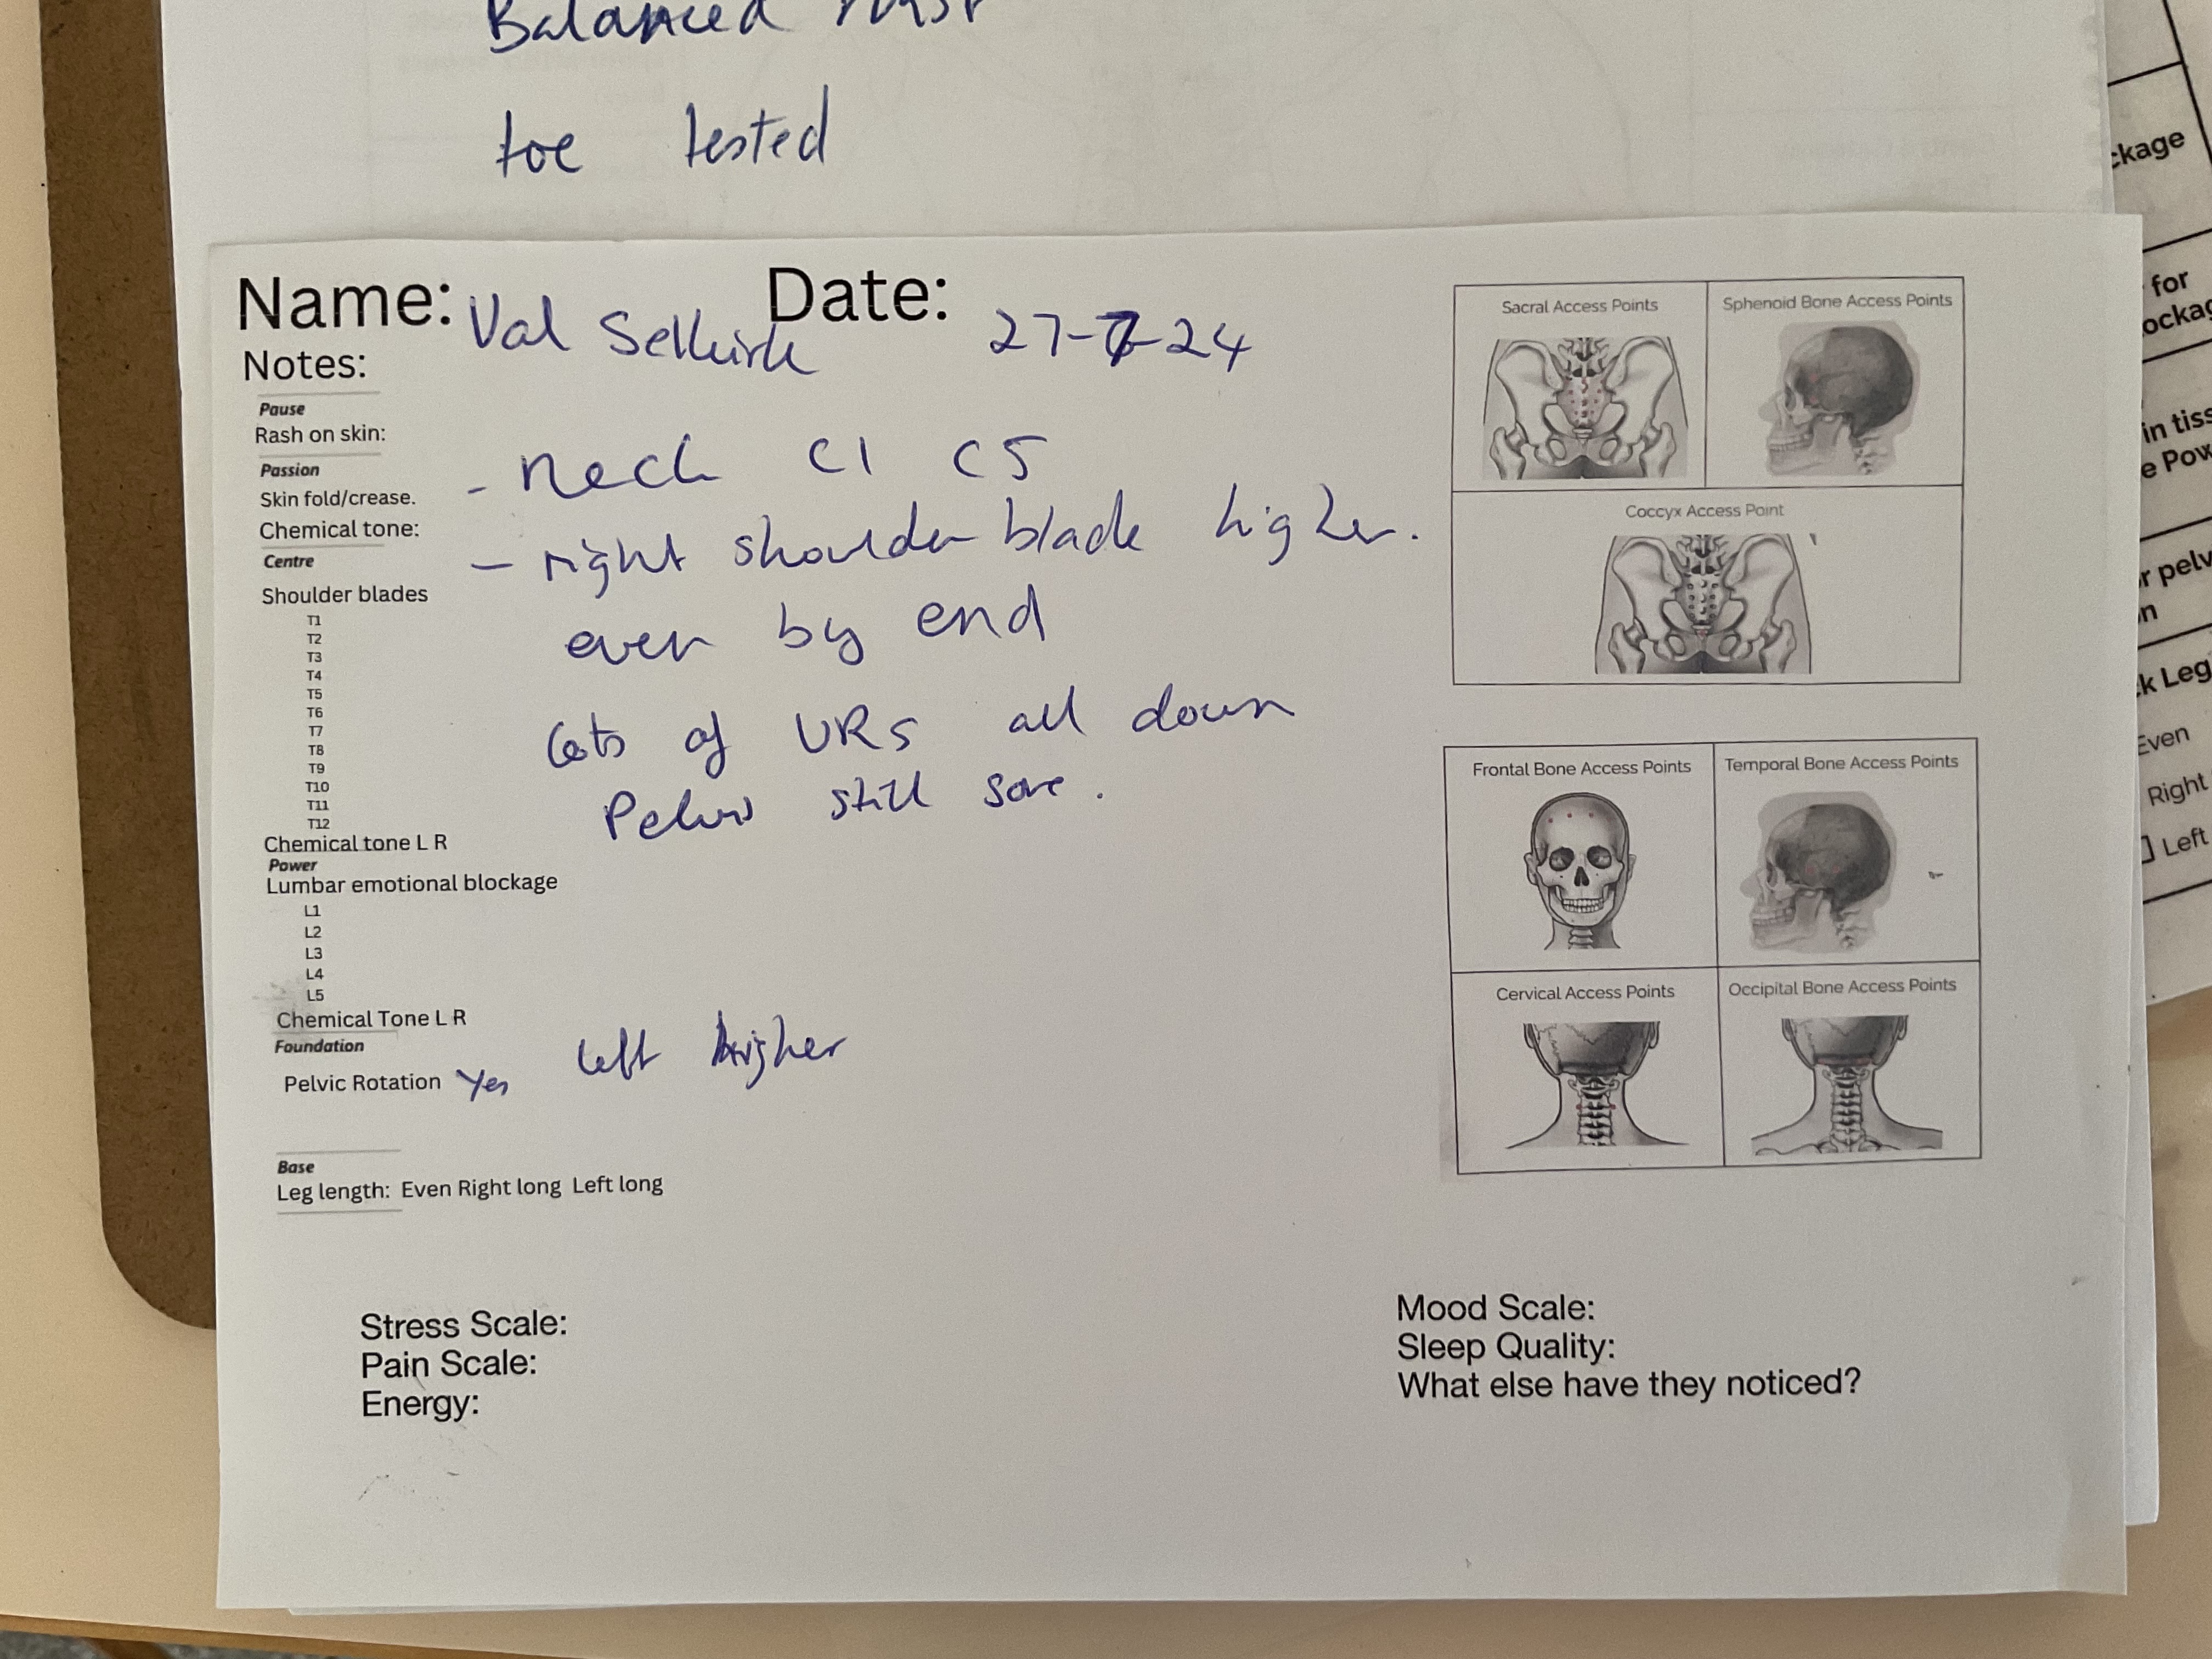 Balanced
toe tested
Name: Val Selkirk Date: 27-7-24
Notes:
Pause
Rash on skin:
Passion
Skin fold/crease. - neck C1 C5
Chemical tone:
Centre - right shoulder blade higher.
Shoulder blades
even by end
T1
T2
T3
T4
T5
T6
T7
T8
T9
T10
T11
T12
Lots of URs all down
Pelvis still sore.
Chemical tone L R
Power
Lumbar emotional blockage
L1
L2
L3
L4
L5
Chemical Tone L R
Foundation
Pelvic Rotation Yes left higher
Base
Leg length: Even Right long Left long
Stress Scale:
Pain Scale:
Energy:
Mood Scale:
Sleep Quality:
What else have they noticed?
Sacral Access Points
Sphenoid Bone Access Points
Coccyx Access Point
Frontal Bone Access Points
Temporal Bone Access Points
Cervical Access Points
Occipital Bone Access Points
ckage
for
ockag
in tiss
e Pow
r pelv
n
k Leg
Even
Right
Left